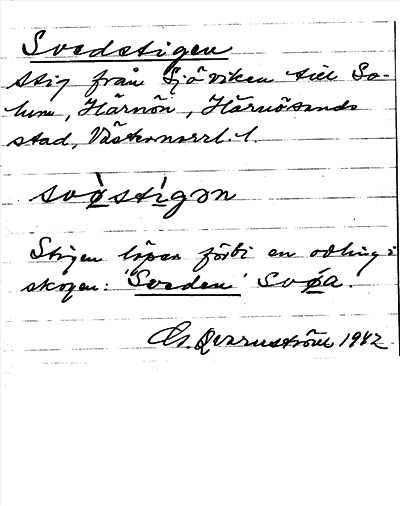 Svedstigen
stig från Sjöviken till So-
lum, Härnön, Härnösands
stad, Västernorrl. l.
Stigen löper förbi en odling i
skogen: 'Sveden'
Qvarnström 1942